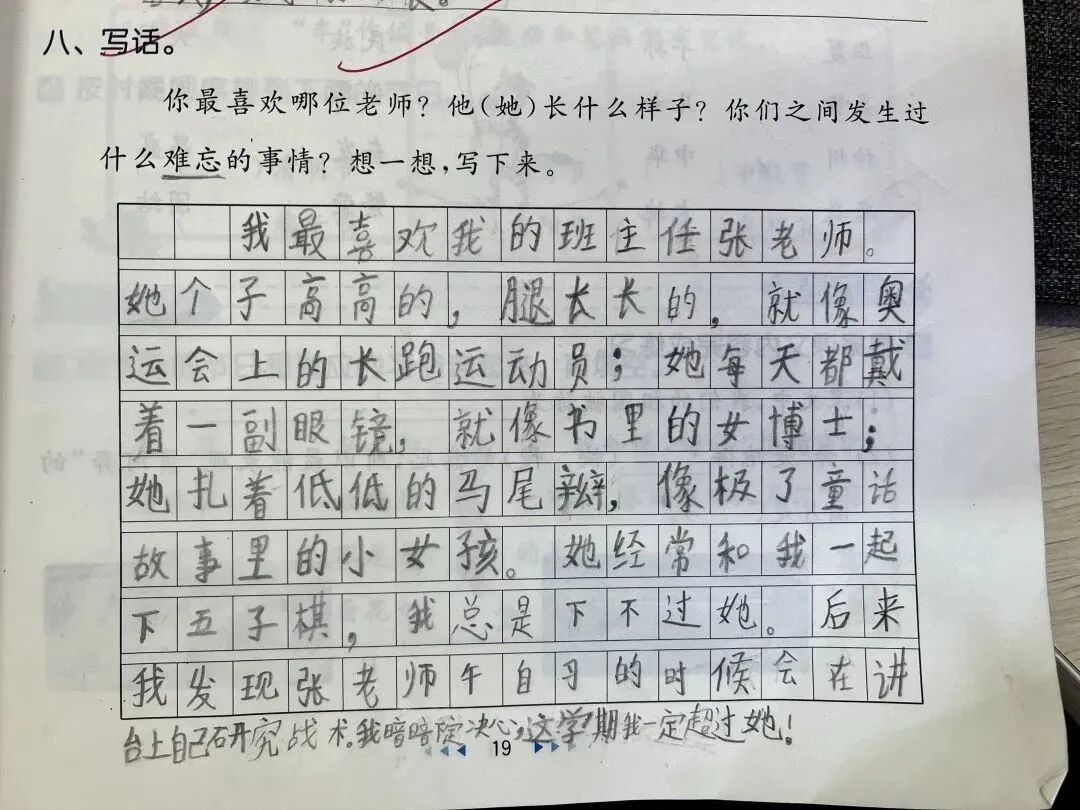 八、写话。
你最喜欢哪位老师？他（她）长什么样子？你们之间发生过
什么难忘的事情？想一想，写下来。
我最喜欢我的班主任张老师。
她个子高高的，腿长长的，就像奥
运会上的长跑运动员；她每天都戴
着一副眼镜，就像书里的女博士；
她扎着低低的马尾辫，像极了童话
故事里的小女孩。她经常和我一起
下五子棋，我总是下不过她。后来
我发现张老师午自习的时候会在讲
台上自己研究战术。我暗暗决心，这学期我一定超过她！
19